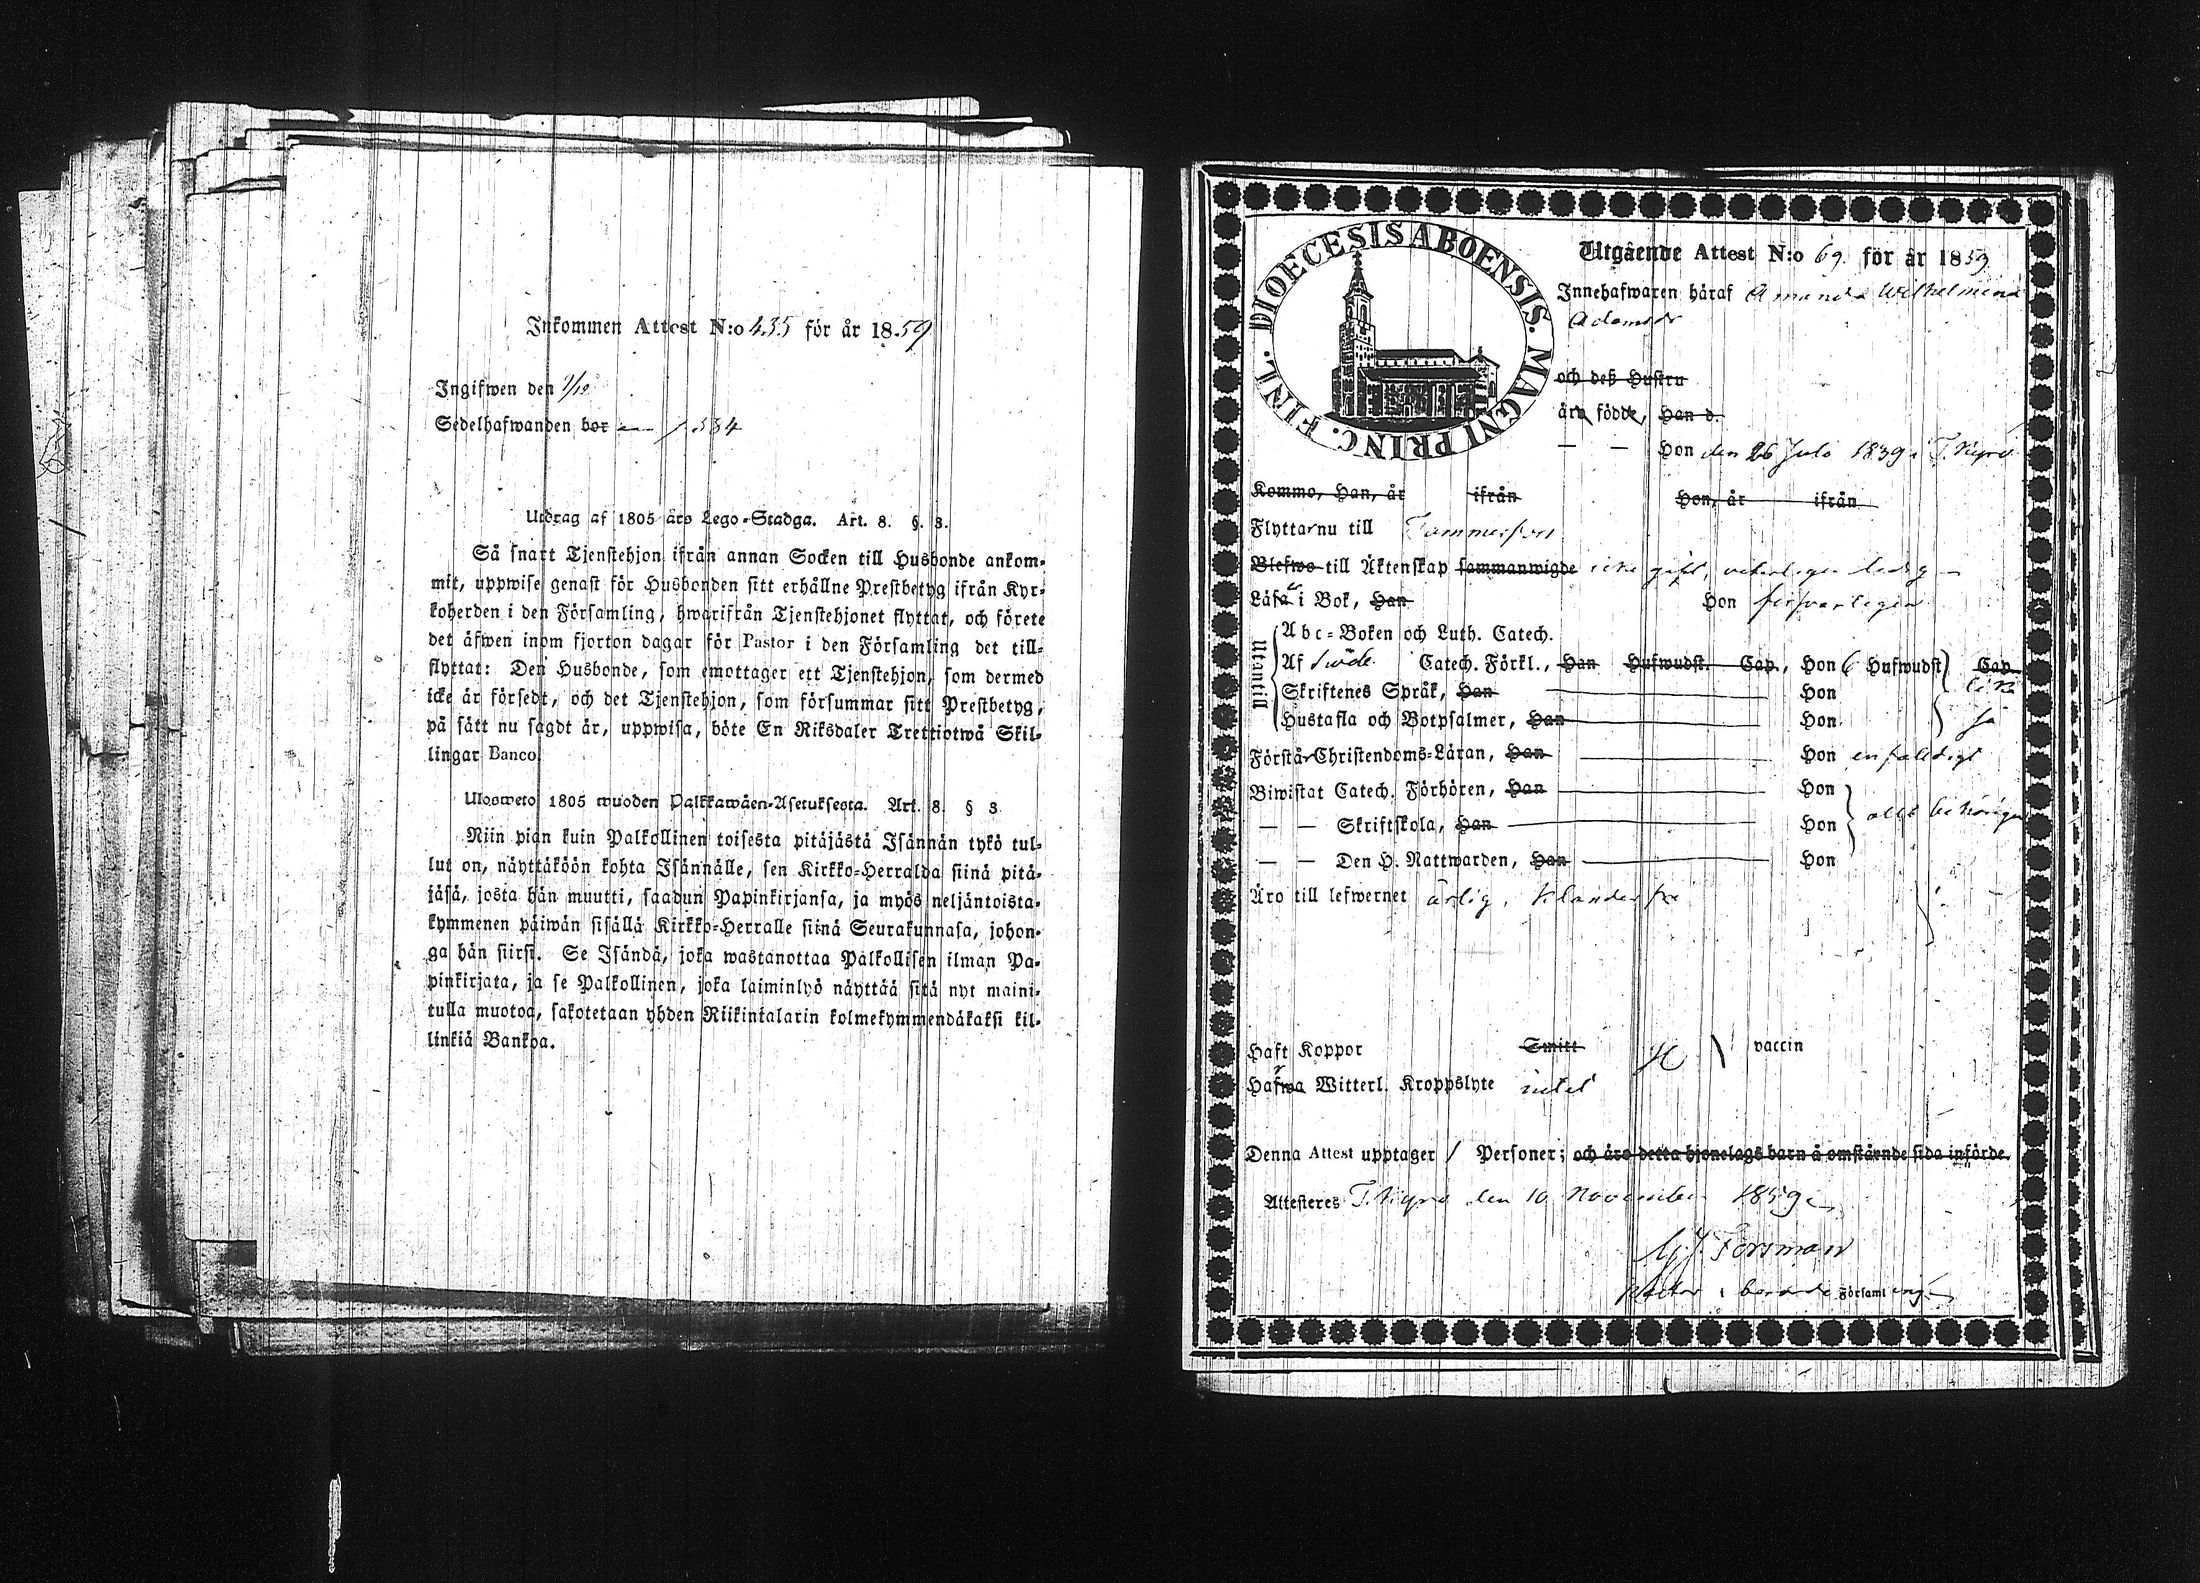 Inkommen Attest N:o 435 för år 1859
Ingifwen den 1/12
Sedelhafwanden bor p. 584
Utdrag af 1805 års Lego-Stadga. Art. 8. §. 8.
Så snart Tjenstehjon ifrån annan Socken till Husbonde ankom-
mit, uppwise genast för Husbonden sitt erhållne Prestbetyg ifrån Kyr-
koherden i den Församling, hwarifrån Tjenstehjonet flyttat, och förete
det äfwen inom fjorton dagar för Pastor i den Församling det till-
flyttat: Den Husbonde, som emottager ett Tjenstehjon, som dermed
icke är försedt, och det Tjenstehjon, som försummar sitt Prestbetyg,
på sätt nu sagdt är, uppwisa, böte En Riksdaler Trettiotwå Skil-
lingar Banco.
Ulosweto 1805 wuoden Palkkawäen-Asetuksesta. Art. 8. § 8
Niin pian kuin Palkollinen toisesta pitäjästä Isännän tykö tul-
lut on, näyttäköön kohta Isännälle, sen Kirkko-Herralda siinä pitä-
jäsä, josta hän muutti, saadun Papinkirjansa, ja myös neljäntoista-
kymmenen päiwän sisällä Kirkko-Herralle siinä Seurakunnasa, johon-
ga hän siirsi. Se Isändä, joka wastanottaa Palkollisen ilman Pa-
pinkirjata, ja se Palkollinen, joka laiminlyö näyttää sitä nyt maini-
tulla muotoa, sakotetaan yhden Riikintalarin kolmekymmendäkaksi kil-
linkiä Bankoa.
DIOECESIS ABOENSIS. MAGNI PRINC. FINL.
Utgående Attest N:o 69. för år 1859
Innehafwaren häraf Amanda Wilhelmina
Adamsdr
och deß Hustru
äro födde, Han d.
— — Hon den 26 Juli 1839 i T. Kyro
Kommo, Han, år ifrån Hon, år ifrån
Flyttar nu till Tammerfors
Blefwo till Äktenskap sammanwigde icke gift, veterligen ledig
Läsa i Bok, Han Hon försvarligen
Utantill
Abc-Boken och Luth. Catech.
Af Catech. Förkl., Han Hufwudst. Cap., Hon 6 Hufwudst Cap
Skriftenes Språk, Han Hon
Hustafla och Botpsalmer, Han Hon
Förstår Christendoms-Läran, Han Hon enfaldigt
Biwistat Catech. Förhören, Han Hon
— — Skriftskola, Han Hon allt behörigen
— — Den H. Nattwarden, Han Hon
Äro till lefwernet ärlig,
Haft Koppor Smitt vaccin
Hafwa Witterl. Kroppslyte intet
Denna Attest upptager 1 Personer; och äro detta hjonelags barn å omstående sida införde.
Attesteres T. Kyro den 10 November 1859
Forsman
Pastor i berörde Församling